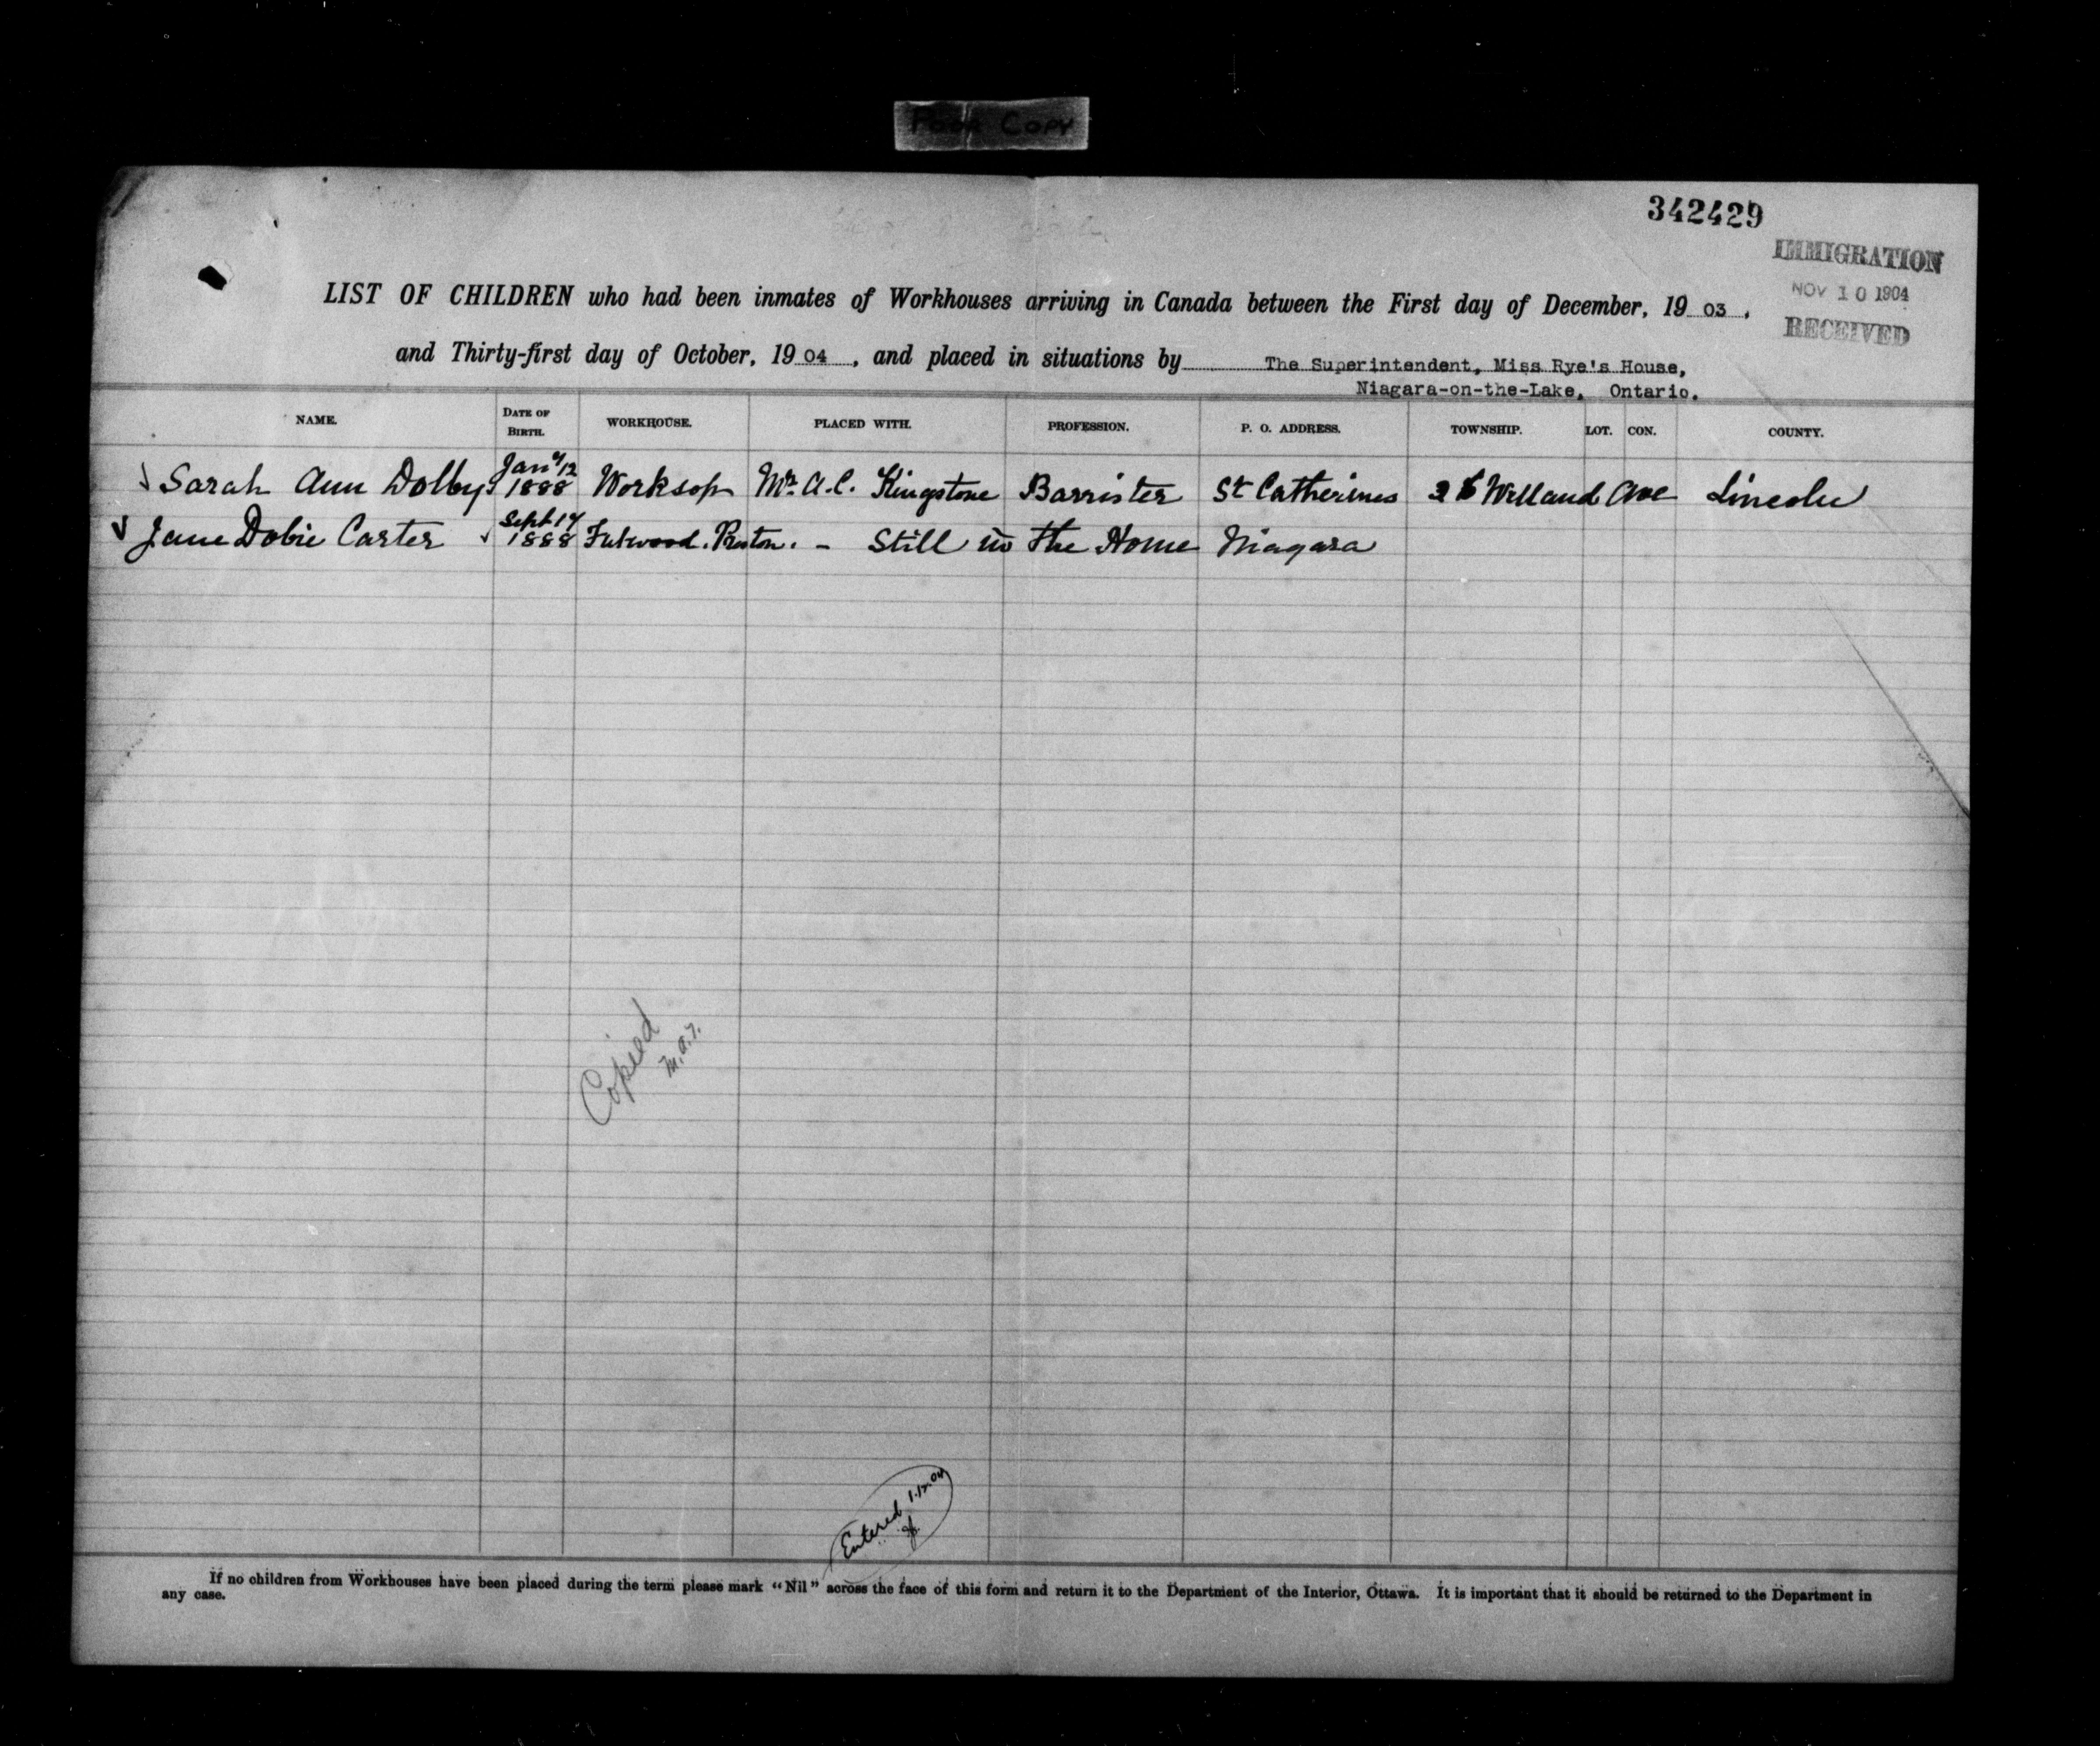 Poor Copy
342429
IMMIGRATION
NOV 10 1904
RECEIVED
LIST OF CHILDREN who had been inmates of Workhouses arriving in Canada between the First day of December, 19 03 ,
and Thirty-first day of October, 19 04 , and placed in situations by The Superintendent, Miss Rye's House,
Niagara-on-the-Lake, Ontario.
NAME. DATE OF BIRTH. WORKHOUSE. PLACED WITH. PROFESSION. P. O. ADDRESS. TOWNSHIP. LOT. CON. COUNTY.
Sarah Ann Dolby Jany 12 1888 Worksop Mr. A.C. Kingstone Barrister St Catherines Welland Ave Lincoln
Jane Dobie Carter Sept 14 1888 Fulwood. Preston. - Still in the Home Niagara
Copied
Entered
If no children from Workhouses have been placed during the term please mark "Nil" across the face of this form and return it to the Department of the Interior, Ottawa. It is important that it should be returned to the Department in
any case.